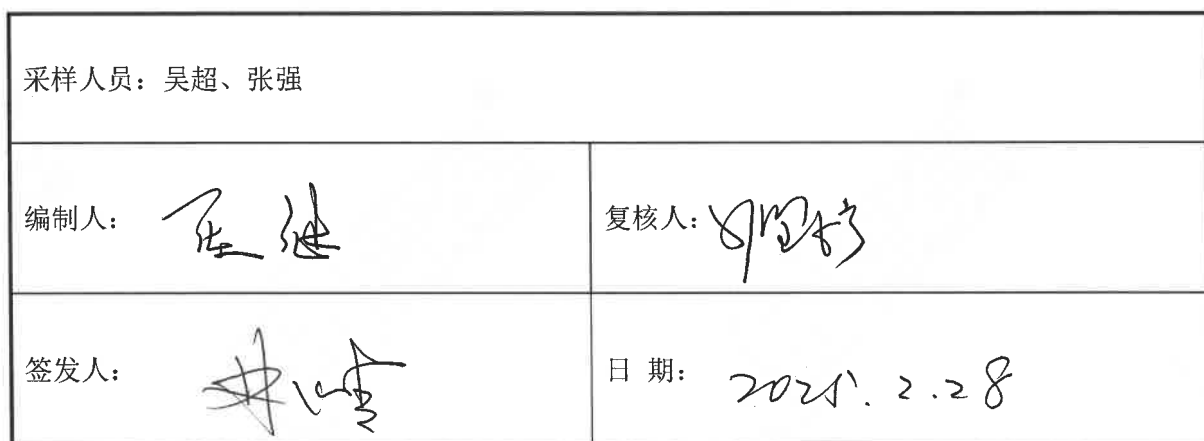 采样人员：吴超、张强
编制人：
复核人：
签发人：
日 期：2025.2.28